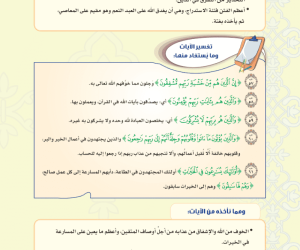 • أعظم الفتن فتنة الاستدراج، وهي أن يغدق الله على العبد النعم وهو مقيم على المعاصي،
ثم يأخذه بغتة.
تفسير الآيات
وما يستفاد منها:
﴿إِنَّ الَّذِينَ هُمْ مِنْ خَشْيَةِ رَبِّهِمْ مُشْفِقُونَ﴾ وجلون مما خوّفهم الله تعالى به.
﴿وَالَّذِينَ هُمْ بِآيَاتِ رَبِّهِمْ يُؤْمِنُونَ﴾ أي، يصدقون بآيات الله في القرآن، ويعملون بها.
﴿وَالَّذِينَ هُمْ بِرَبِّهِمْ لَا يُشْرِكُونَ﴾ أي، يخلصون العبادة لله وحده ولا يشركون به غيره.
﴿وَالَّذِينَ يُؤْتُونَ مَا آتَوْا وَقُلُوبُهُمْ وَجِلَةٌ أَنَّهُمْ إِلَى رَبِّهِمْ رَاجِعُونَ﴾ والذين يجتهدون في أعمال الخير والبر،
وقلوبهم خائفة ألا تقبل أعمالهم، وألا تنجيهم من عذاب ربهم إذا رجعوا إليه للحساب.
﴿أُولَئِكَ يُسَارِعُونَ فِي الْخَيْرَاتِ﴾ أولئك المجتهدون في الطاعة، دأبهم المسارعة إلى كل عمل صالح،
﴿وَهُمْ لَهَا سَابِقُونَ﴾ وهم إلى الخيرات سابقون.
ومما نأخذه من الآيات:
• الخوف من الله والإشفاق من عذابه من أجل أوصاف المتقين، وأعظم ما يعين على المسارعة
في الخيرات.